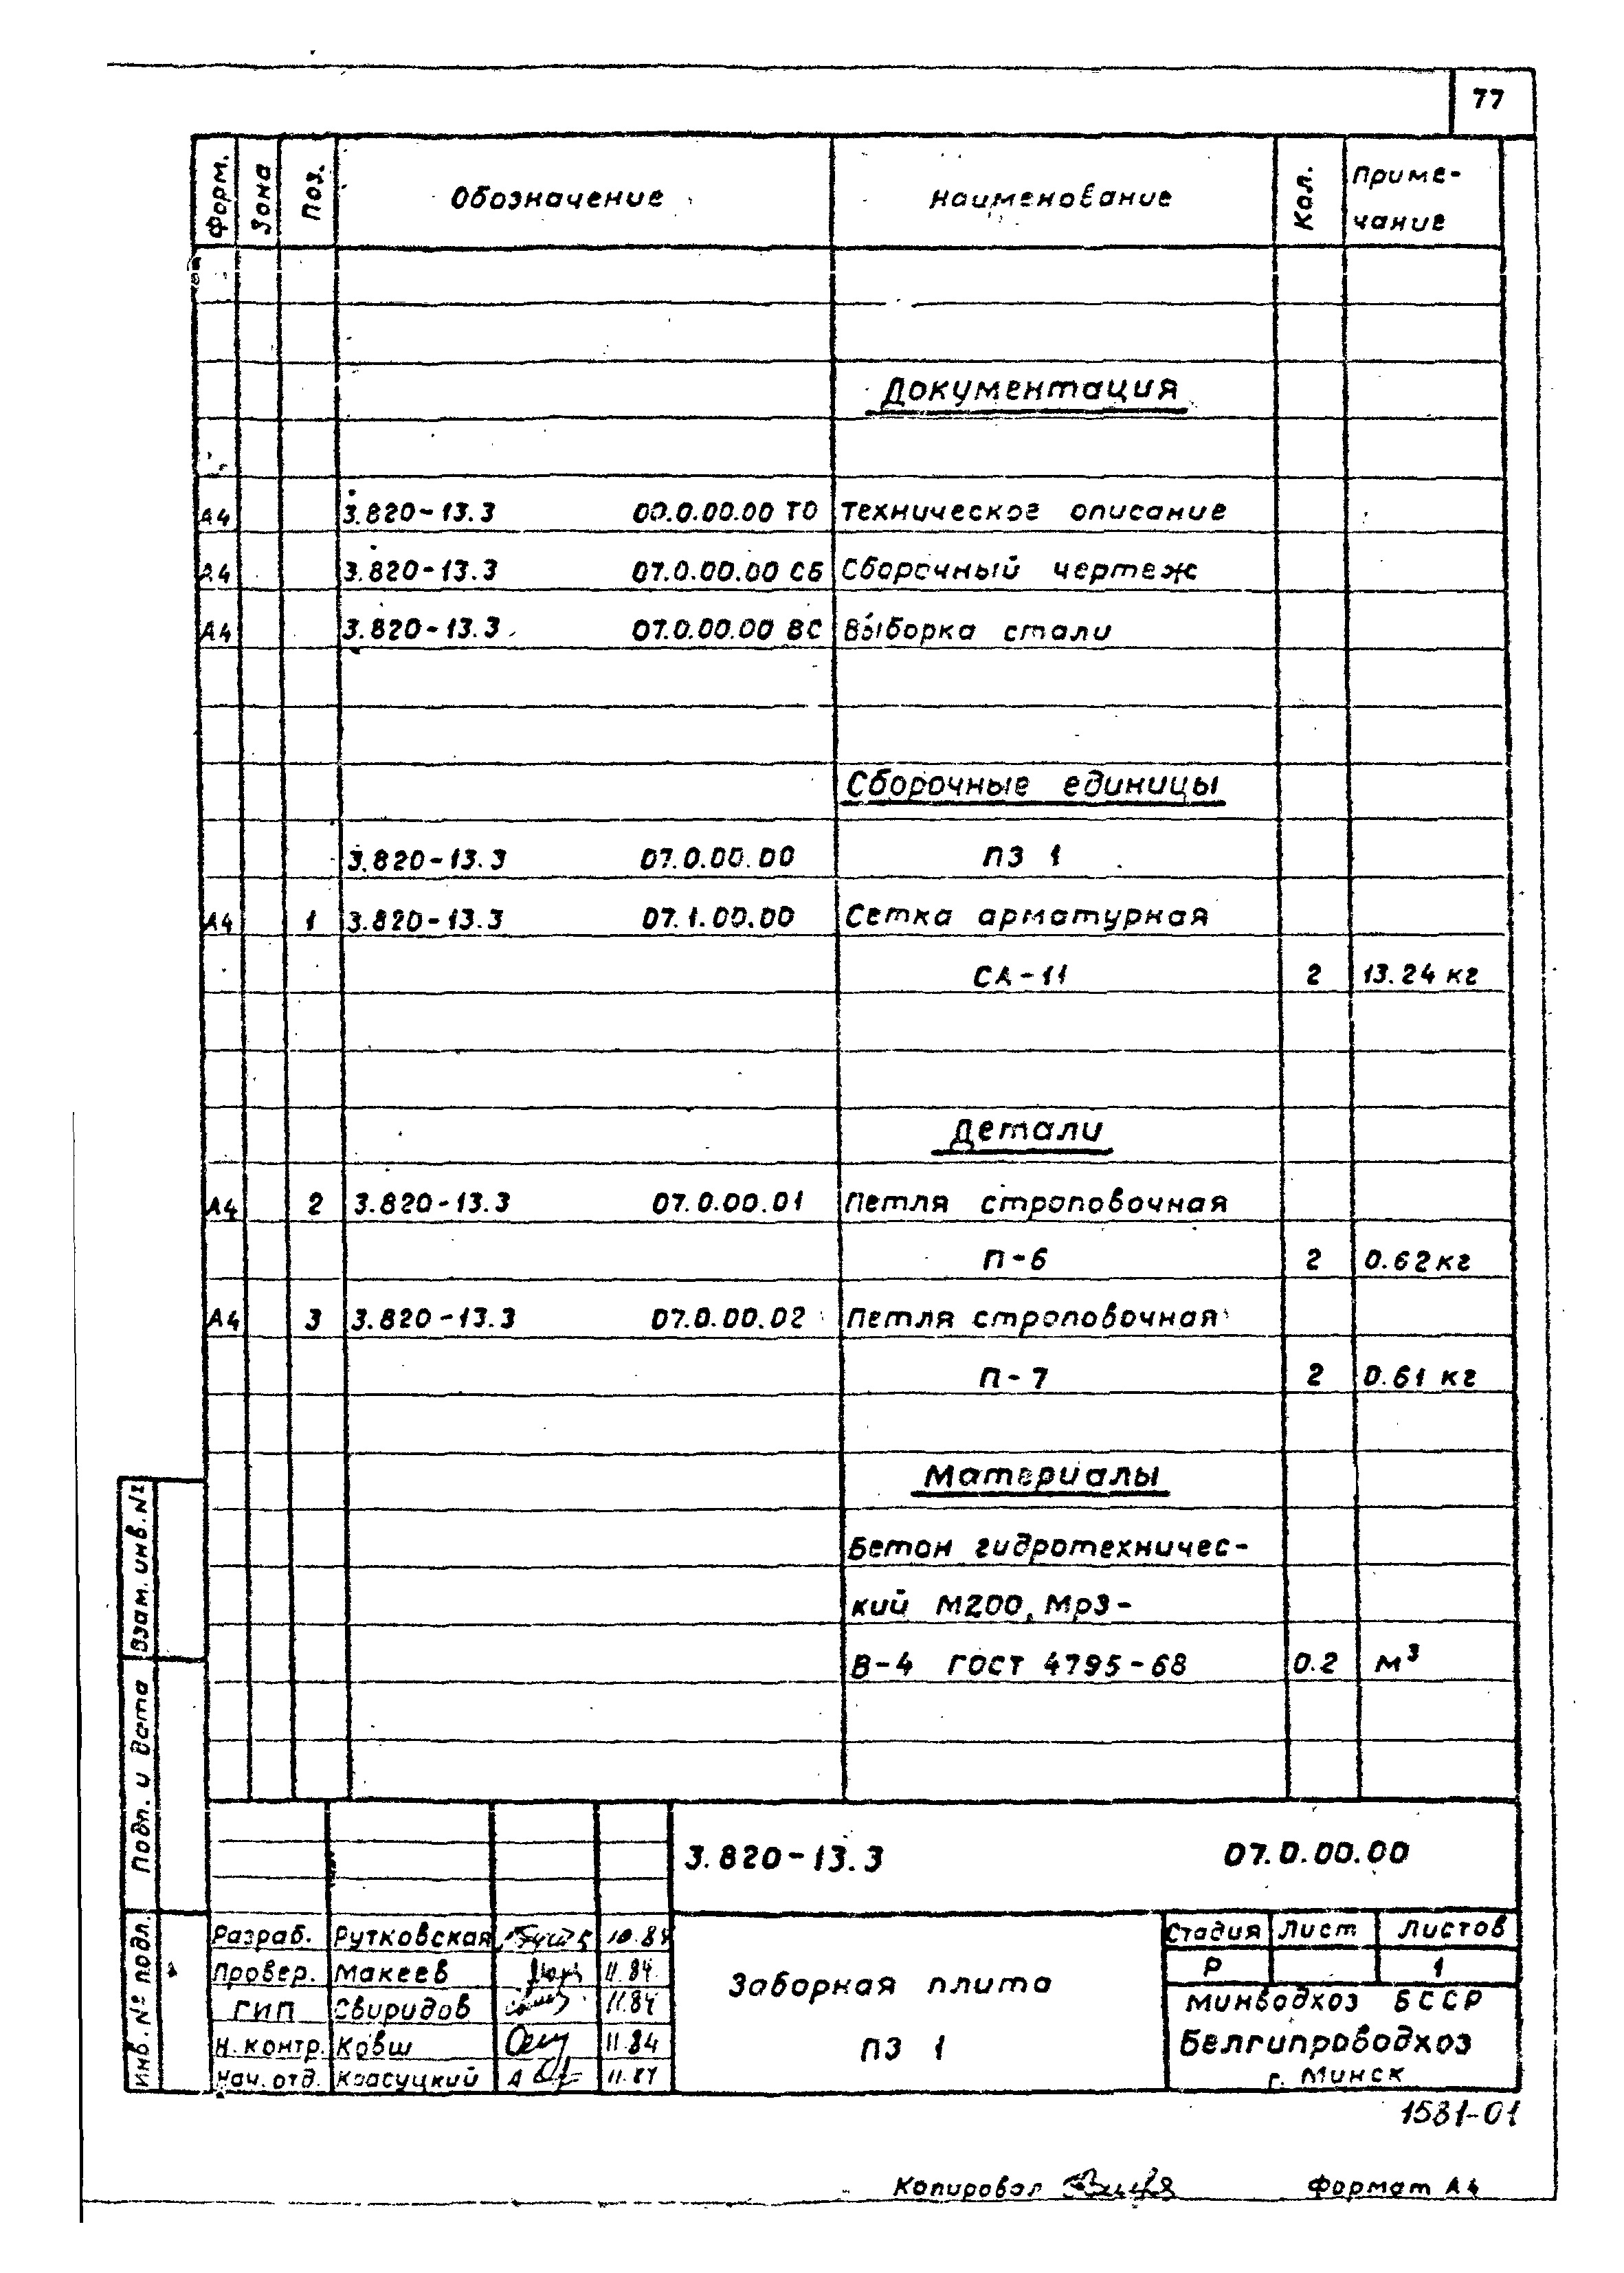 77
Форм. Зона Поз. Обозначение Наименование Кол. Приме-
чание
Документация
А4 3.820-13.3 00.0.00.00 ТО Техническое описание
А4 3.820-13.3 07.0.00.00 СБ Сборочный чертеж
А4 3.820-13.3 07.0.00.00 ВС Выборка стали
Сборочные единицы
3.820-13.3 07.0.00.00 ПЗ 1
А4 1 3.820-13.3 07.1.00.00 Сетка арматурная
СА-11 2 13.24 кг
Детали
А4 2 3.820-13.3 07.0.00.01 Петля строповочная
П-6 2 0.62 кг
А4 3 3.820-13.3 07.0.00.02 Петля строповочная
П-7 2 0.61 кг
Материалы
Бетон гидротехничес-
кий М200, Мрз-
В-4 ГОСТ 4795-68 0.2 м³
Взам. инв. №
Подп. и дата
Инв. № подл.
3.820-13.3 07.0.00.00
Разраб. Рутковская 10.84
Провер. Макеев 11.84
ГИП Свиридов 11.84
Н. контр. Ковш 11.84
Нач. отд. Красуцкий 11.84
Заборная плита
ПЗ 1
Стадия Лист Листов
Р 1
Минводхоз БССР
Белгипроводхоз
г. Минск
1581-01
Копировал Формат А4